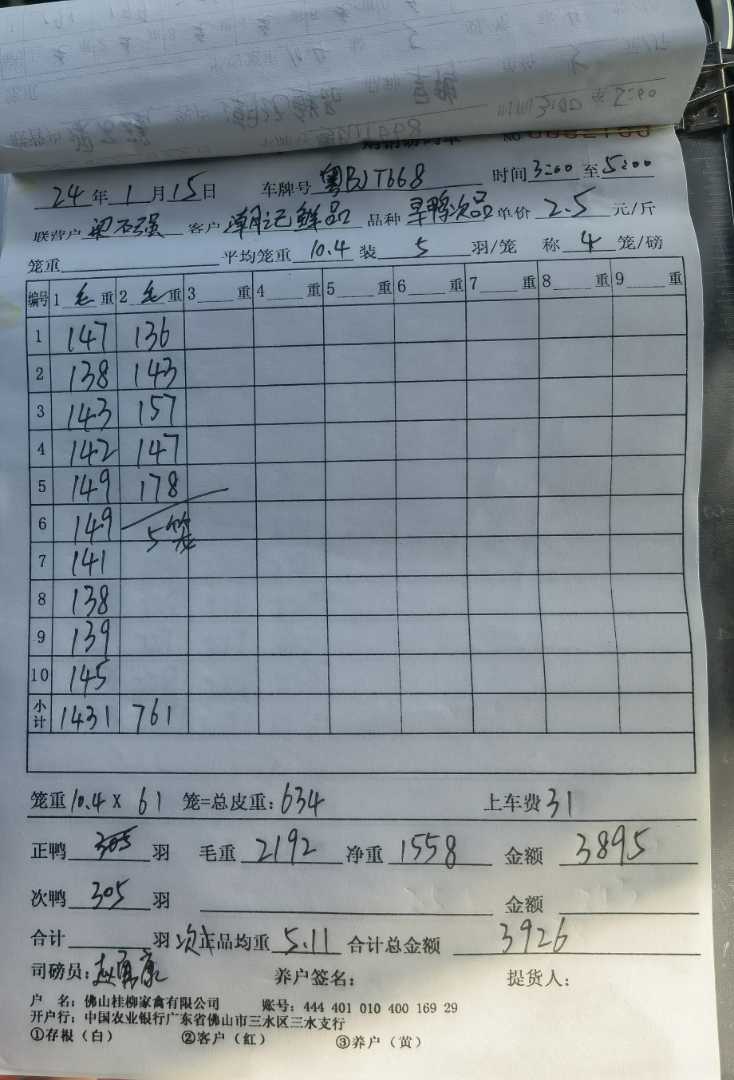 24 年 1 月 15 日 车牌号 粤BJT668 时间 3:00 至 5:00
联营户 梁不强 客户 潮记鲜品 品种 旱鸭次品 单价 2.5 元/斤
笼重 平均笼重 10.4 装 5 羽/笼 称 4 笼/磅
编号 1 毛 重 2 毛 重 3 重 4 重 5 重 6 重 7 重 8 重 9 重
1 147 136
2 138 143
3 143 157
4 142 147
5 149 178
6 149 5笼
7 141
8 138
9 139
10 145
小计 1431 761
笼重 10.4 × 61 笼=总皮重: 634 上车费 31
正鸭 羽 毛重 2192 净重 1558 金额 3895
次鸭 305 羽 金额
合计 羽 次 品均重 5.11 合计总金额 3926
司磅员: 赵 康 养户签名: 提货人:
户 名: 佛山桂柳家禽有限公司 账号: 444 401 010 400 169 29
开户行: 中国农业银行广东省佛山市三水区三水支行
①存根（白） ②客户（红） ③养户（黄）